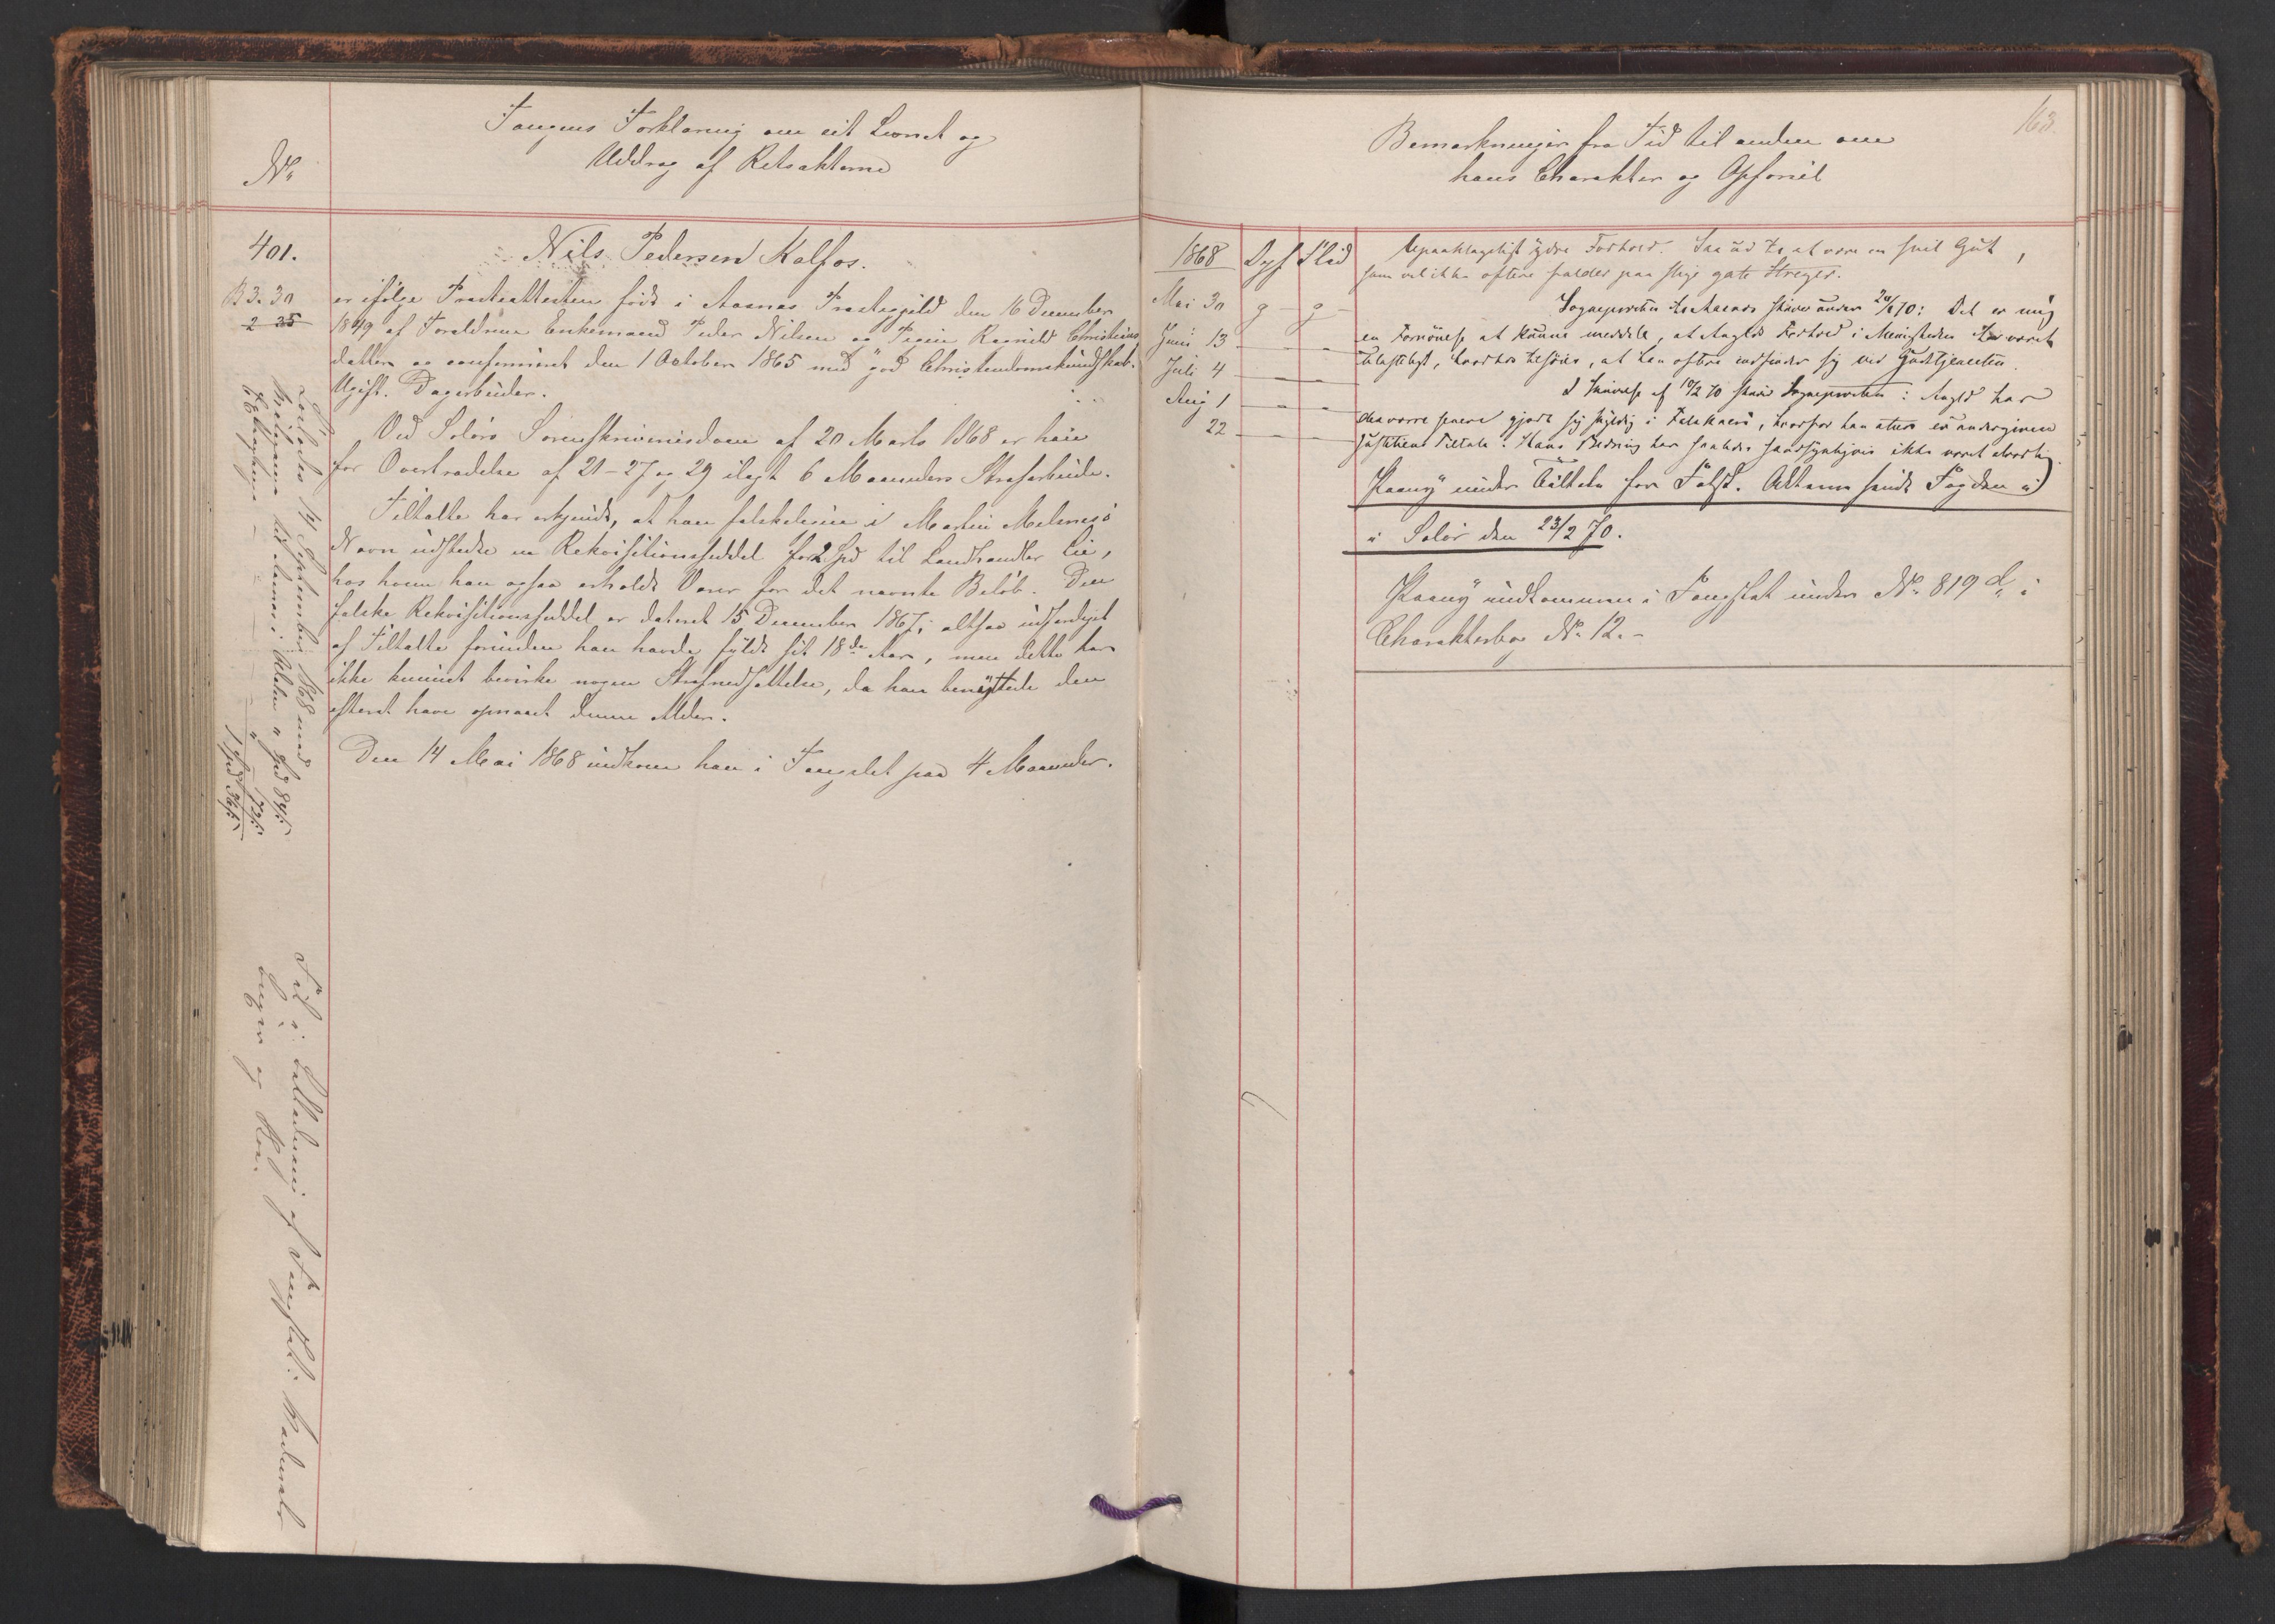 No
Fangens Forklaring om sit Levnet og
Uddrag af Retsakterne
401.
B 3. 30
2 35
Nils Pedersen Kalfos.
er ifølge Præsteattesten født i Aasnes Præstegjeld den 16 December
1849 af Forældrene Enkemand Peder Nilsen og Pigen Ragnild Christians
datter og confirmeret den 1 October 1865 med "god Christendomskundskab".
Ugift. Dagarbeider.
Ved Solørs Sorenskriverisdom af 20 Marts 1868 er han
for Overtrædelse af 21-27 og 29 ilagt 6 Maaneders Strafarbeide.
Tiltalte har erkjendt, at han falskeligen i Martin Melnesø
Navn udstedte en Rekvisitionsseddel for 2 Spd til Landhandler Lie,
hos hvem han ogsaa erholdt Varer for det nævnte Beløb. Den
falske Rekvisitionsseddel er dateret 15 December 1867, altsaa udfærdiget
af Tiltalte forinden han havde fyldt sit 18de Aar, men dette har
ikke kunnet bevirke nogen Strafnedsættelse, da han benyttede den
efterat have opnaaet denne Alder.
Den 14 Mai 1868 indkom han i Fængslet paa 4 Maaneder.
Løslades 14 September 1868 med
Reisepenge til Aasnes i Solør " Spd 84 s
" 72 s
1 Spd 36 s
Fik i Beklædning af Fangstat:
Buxer og Skoe.
163.
Bemærkninger fra Tid til anden om
hans Charakter og Opførsel
1868 Opf Flid
Mai 30 g g
Juni 13 - -
Juli 4 - -
Aug 1 - -
22 - -
Upaaklageligt ydre Forhold. Saa ud til at være en snil Gut,
som vel ikke oftere falder paa slige gale Streger.
Sognepresten til Aasnes skriver under 20/1 70: Det er mig
en Fornöielse at kunne meddele, at Angjs Forhold i Menigheden har været
ulasteligt, hvorhos tilföies, at han oftere indfinder sig ved Gudstjenesten.
I Skrivelse af 10/2 70 skriver Sognepresten: Angjs har
desværre senere gjort sig skyldig i Falskneri, hvorfor han atter er undergiven
Justitiens Tiltale. Hans Bedring har saaledes sandsynligvis ikke været alvorlig.
Paany under Tiltale for Falsk. Akterne sendt Fogden
i Solør den 23/2 70.
Paany indkommen i Fangstat under No 819 d, i
Charakterbog No 12.-